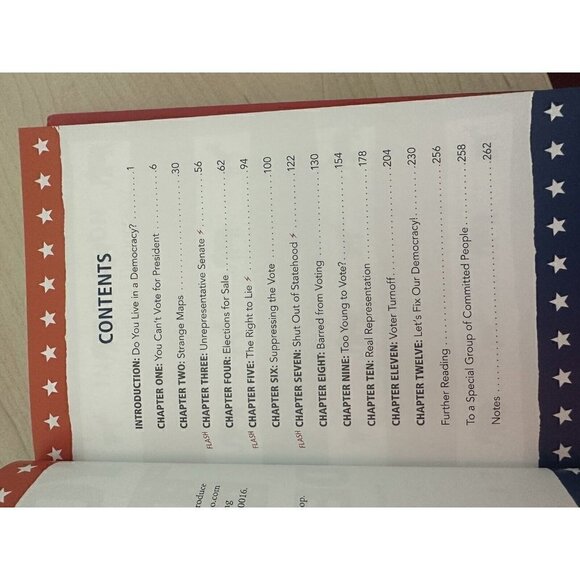 CONTENTS
INTRODUCTION: Do You Live in a Democracy? 1
CHAPTER ONE: You Can't Vote for President 6
CHAPTER TWO: Strange Maps 30
FLASH CHAPTER THREE: Unrepresentative Senate 56
CHAPTER FOUR: Elections for Sale 62
FLASH CHAPTER FIVE: The Right to Lie 94
CHAPTER SIX: Suppressing the Vote 100
FLASH CHAPTER SEVEN: Shut Out of Statehood 122
CHAPTER EIGHT: Barred from Voting 130
CHAPTER NINE: Too Young to Vote? 154
CHAPTER TEN: Real Representation 178
CHAPTER ELEVEN: Voter Turnoff 204
CHAPTER TWELVE: Let's Fix Our Democracy! 230
Further Reading 256
To a Special Group of Committed People 258
Notes 262